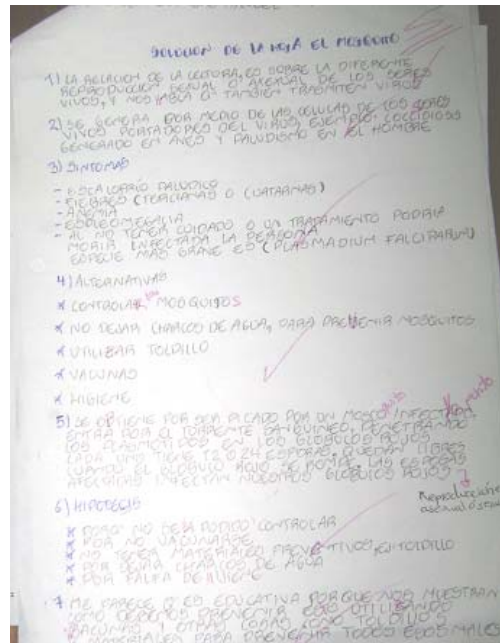 SOLUCION DE LA HOJA EL MOSQUITO
1) LA RELACION DE LA LECTURA, ES SOBRE LA DIFERENTE
REPRODUCCION SEXUAL O ASEXUAL DE LOS SERES
VIVOS, Y NOS HABLA O TAMBIEN TRASMITEN VIRUS
2) SE GENERA POR MEDIO DE LAS CELULAS DE LOS SERES
VIVOS PORTADORES DEL VIRUS, EJEMPLO: COCCIDIOSIS
GENERADO EN AVES Y PALUDISMO EN EL HOMBRE
3) SINTOMAS
- ESCALOFRIO PALUDICO
- FIEBRES (TERCIANAS O CUATARNAS)
- ANEMIA
- ESPLEOMEGALIA
- AL NO TENER CUIDADO O UN TRATAMIENTO PODRIA
MORIR INFECTADA LA PERSONA
ESPECIE MAS GRAVE ES (PLASMADIUM FALCIPARUM)
4) ALTERNATIVAS
* CONTROLAR MOSQUITOS
* NO DEJAR CHARCOS DE AGUA, PARA PREVENIR MOSQUITOS
* UTILIZAR TOLDILLO
* VACUNAS
* HIGIENE
5) SE OBTIENE POR SER PICADO POR UN MOSCO INFECTADO
ENTRA POR EL TORRENTE SANGUINEO, PENETRANDO
LOS EN LOS GLOBULOS ROJOS
CADA UNO TIENE 12 O 24 ESPORAS, QUEDAN LIBRES
CUANDO EL GLOBULO ROJO SE ROMPE, LAS ESPORAS
INFECTAN NUESTROS GLOBULOS ROJOS
Reproducción
asexual o sexual
6) HIPOTESIS
* NO DEJA CONTROLAR
* POR NO VACUNARSE
* NO TENER MATERIALES PREVENTIVOS, EJ: TOLDILLO
* POR DEJAR CHARCOS DE AGUA
* POR FALTA DE HIGIENE
7 ME PARECE Q ES EDUCATIVA PORQUE NOS MUESTRAN
COMO DEBEMOS PREVENIR ESTO UTILIZANDO
VACUNAS Y OTRAS COSAS COMO TOLDILLO
MATERIALES PARA PREVENIR TODOS ESOS MALES